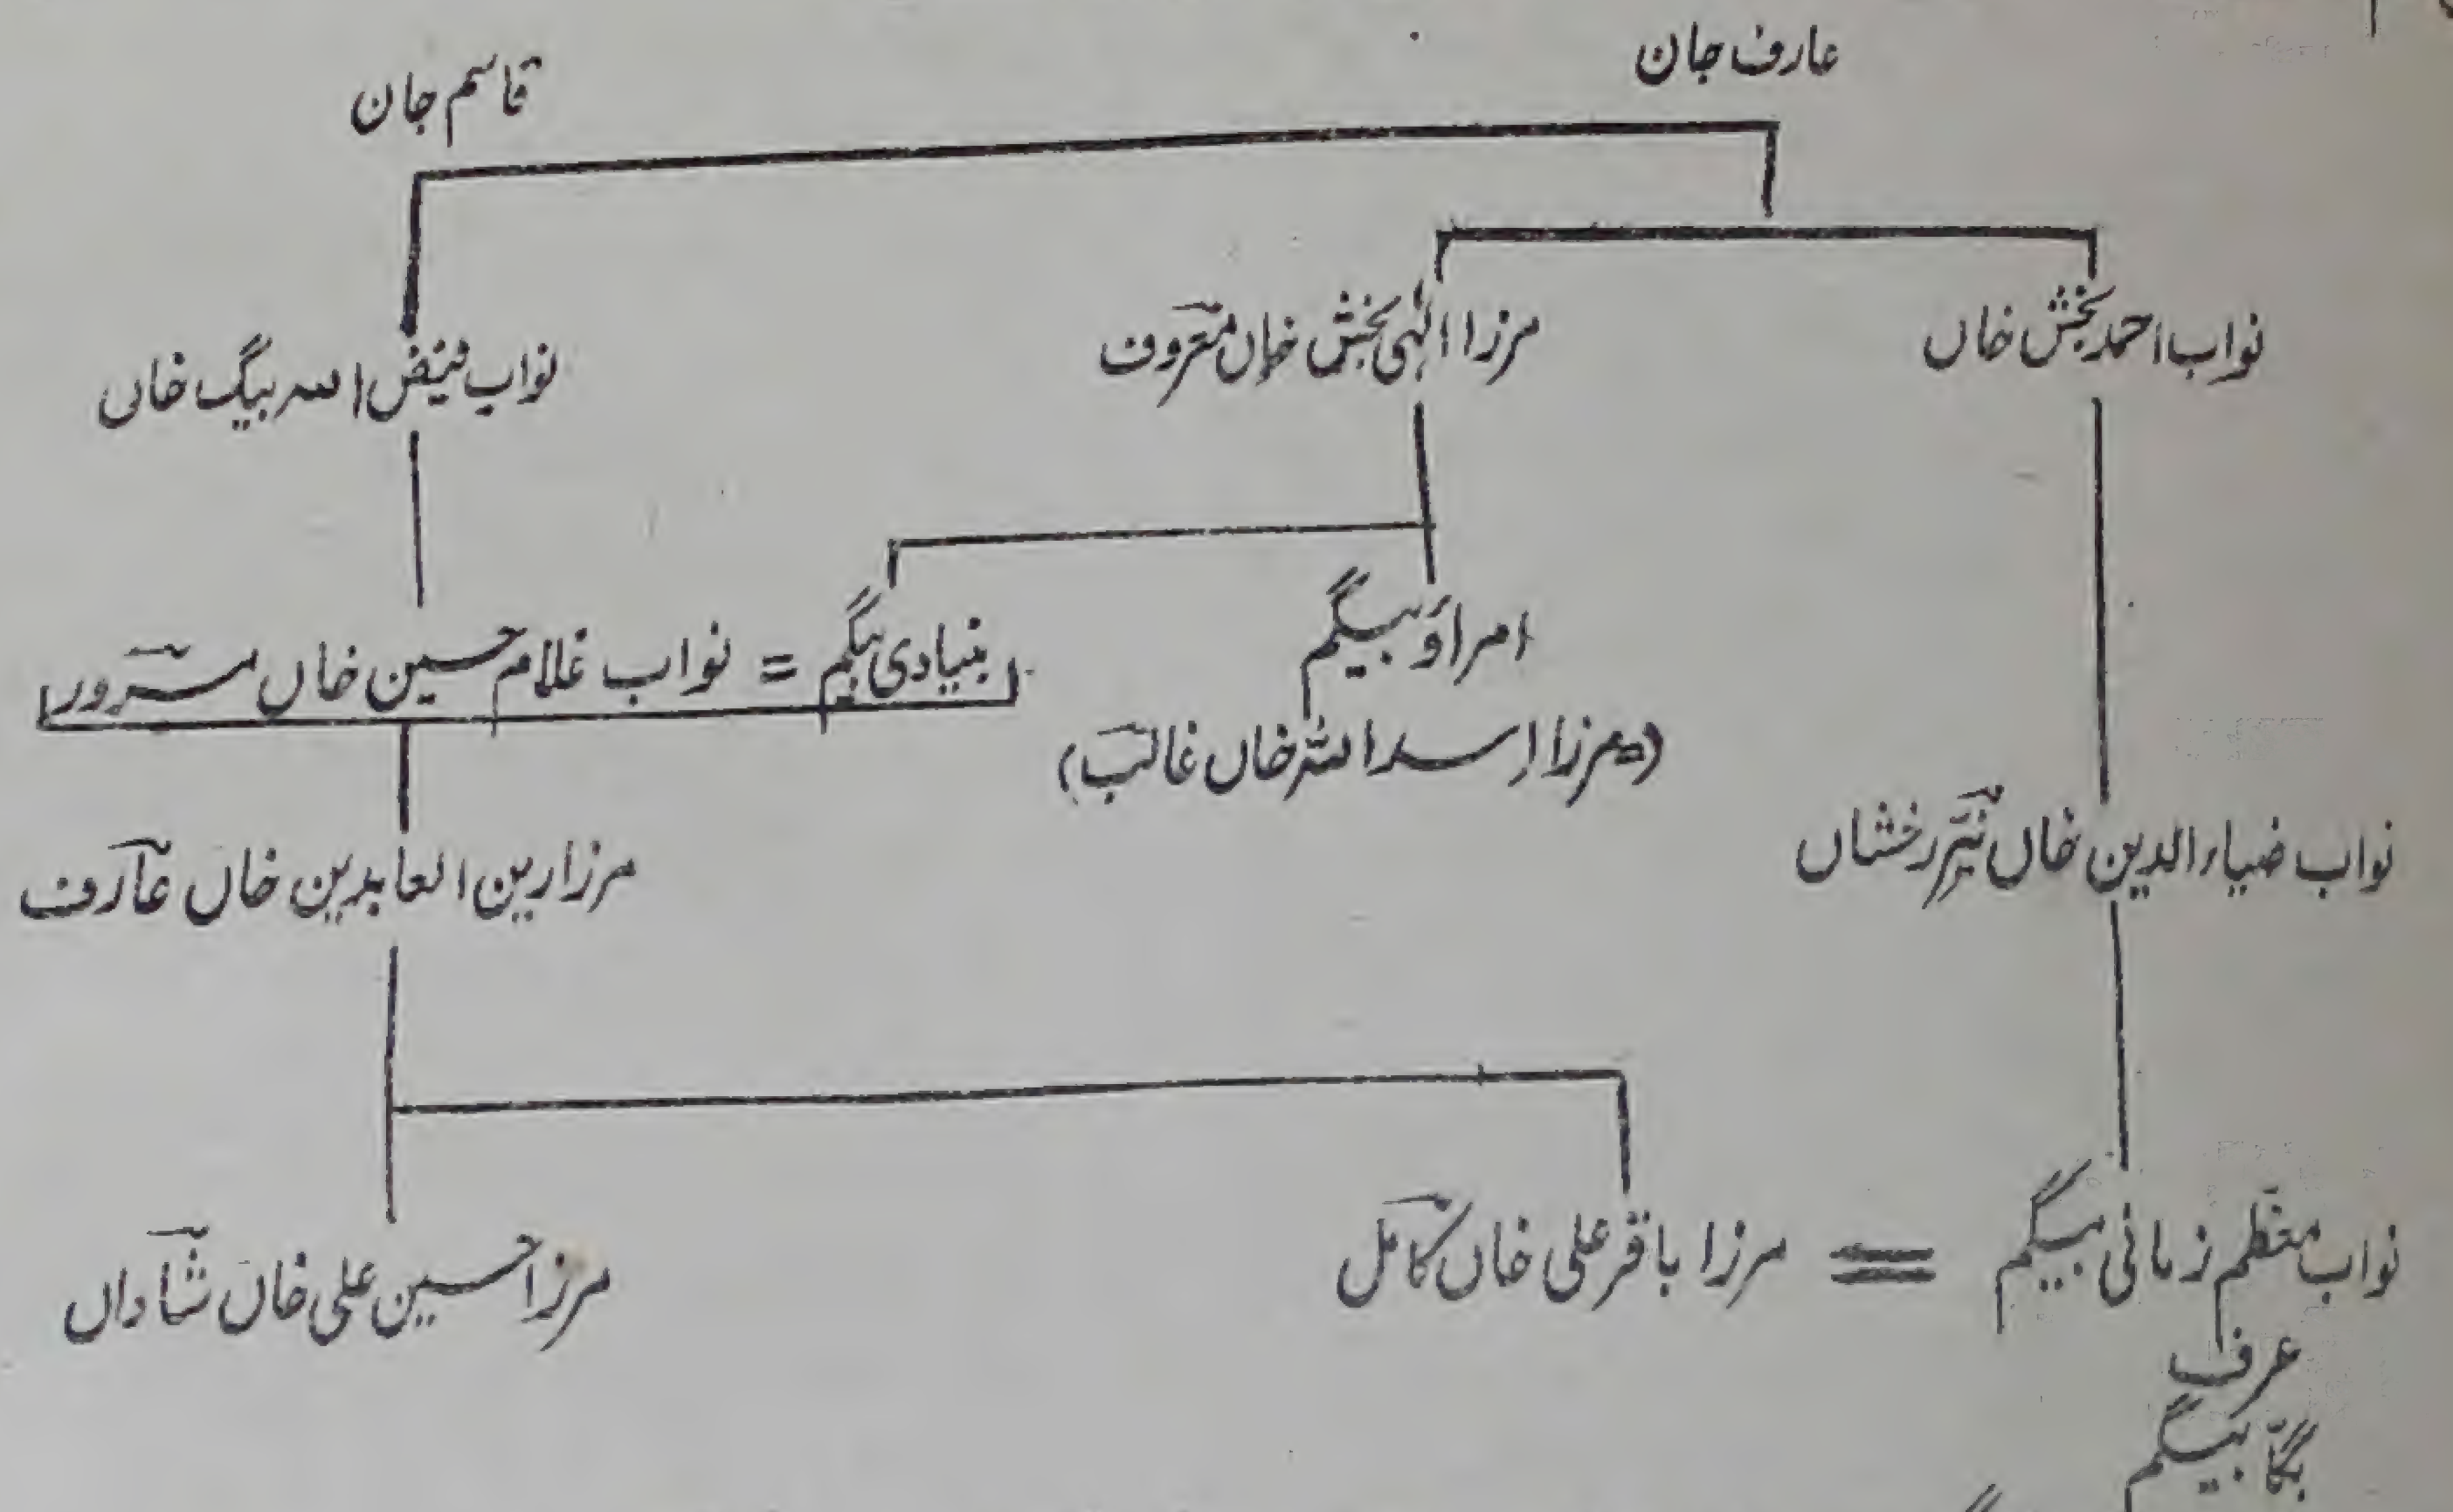 عارف جان
قاسم جان
نواب احمد بخش خاں
مرزا الٰہی بخش خاں معروف
نواب فیض اللہ بیگ خاں
امراؤ بیگم
(= مرزا اسد اللہ خاں غالب)
بنیادی بیگم = نواب غلام حسین خاں مسرور
نواب ضیاء الدین خاں نیّر رخشاں
مرزا زین العابدین خاں عارف
نواب معظم زمانی بیگم = مرزا باقر علی خاں کامل
مرزا حسین علی خاں شاداں
عرف
بگّا بیگم